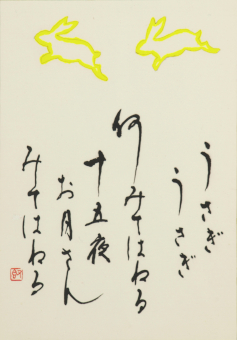 うさぎ
うさぎ
何みてはねる
十五夜
お月さん
みてはねる